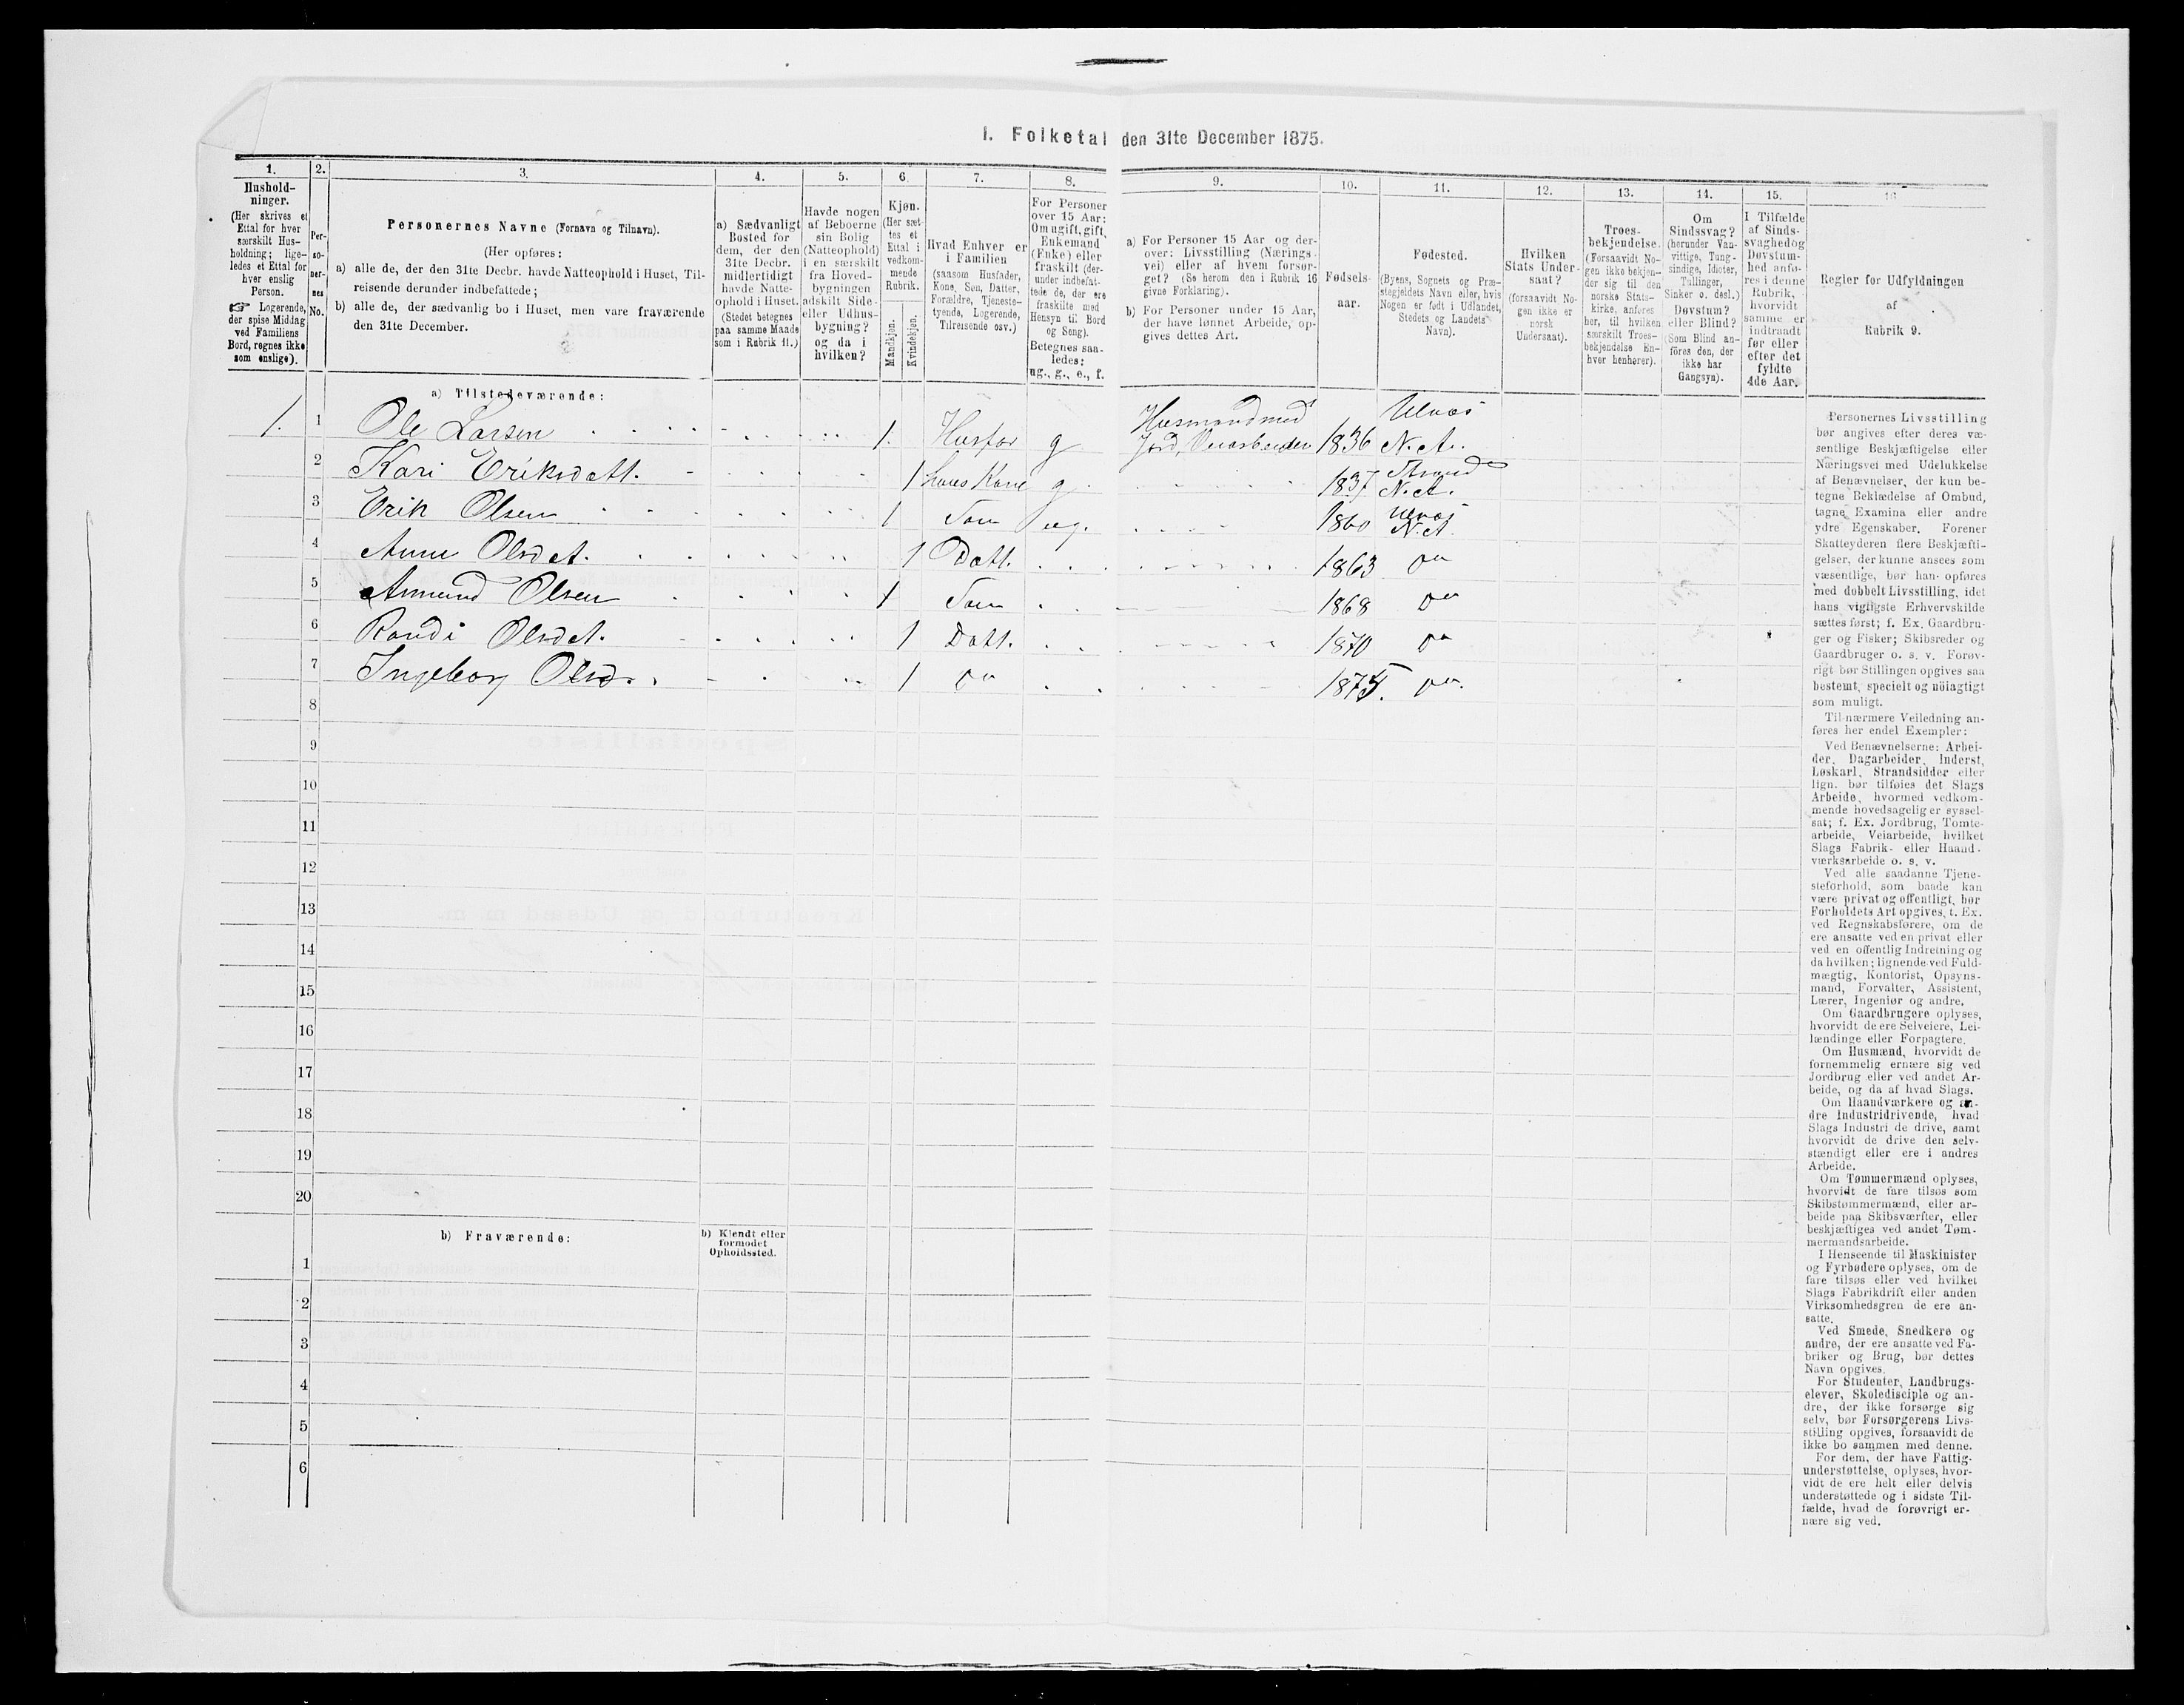 I. Folketal den 31te December 1875.
1. 2. 3. 4. 5. 6. 7. 8. 9. 10. 11. 12. 13. 14. 15. 16
Hushold-
ninger.
(Her skrives et
Ettal for hver
særskilt Hus-
holdning; lige-
ledes et Ettal for
hver enslig
Person.
☞ Logerende,
der spise Middag
ved Familiens
Bord, regnes ikke
som enslige).
Per-
so-
ner-
nes
No.
Personernes Navne (Fornavn og Tilnavn).
(Her opføres:
a) alle de, der den 31te Decbr. havde Natteophold i Huset, Til-
reisende derunder indbefattede;
b) alle de, der sædvanlig bo i Huset, men vare fraværende
den 31te December.
a) Sædvanligt
Bosted for
dem, der den
31te Decbr.
midlertidigt
havde Natte-
ophold i Huset.
(Stedet betegnes
paa samme Maade
som i Rubrik 11.)
Havde nogen
af Beboerne
sin Bolig
(Natteophold)
i en særskilt
fra Hoved-
bygningen
adskilt Side-
eller Udhus-
bygning?
og da i
hvilken?
Kjøn.
(Her sæt-
tes et
Ettal i
vedkom-
mende
Rubrik.
Mandkjøn.
Kvindekjøn.
Hvad Enhver er
i Familien
(saasom Husfader,
Kone, Søn, Datter,
Forældre, Tjeneste-
tyende, Logerende,
Tilreisende osv.)
For Personer
over 15 Aar:
Om ugift, gift,
Enkemand
(Enke) eller
fraskilt (der-
under indbefat-
tede de, der ere
fraskilte med
Hensyn til Bord
og Seng).
Betegnes saa-
ledes:
ug., g., e., f.
a) For Personer 15 Aar og der-
over: Livsstilling (Nærings-
vei) eller af hvem forsør-
get? (Se herom den i Rubrik 16
givne Forklaring).
b) For Personer under 15 Aar,
der have lønnet Arbeide, op-
gives dettes Art.
Fødsels-
aar.
Fødested.
(Byens, Sognets og Præ-
stegjeldets Navn eller, hvis
Nogen er født i Udlandet,
Stedets og Landets
Navn).
Hvilken
Stats Under-
saat?
(forsaavidt No-
gen ikke er
norsk
Undersaat).
Troes-
bekjendelse.
(Forsaavidt No-
gen ikke bekjen-
der sig til den
norske Stats-
kirke, anføres
her, til hvilken
særskilt Troes-
bekjendelse En-
hver henhører).
Om
Sindssvag?
(herunder Van-
vittige, Tung-
sindige, Idioter,
Tullinger,
Sinker o. desl.)
Døvstum?
eller Blind?
(Som Blind an-
føres den, der
ikke har
Gangsyn).
I Tilfælde
af Sinds-
svaghed og
Døvstum-
hed anfø-
res i denne
Rubrik,
hvorvidt
samme er
indtraadt
før eller
efter det
fyldte
4de Aar.
Regler for Udfyldningen
af
Rubrik 9.
a) Tilstedeværende:
1. 1 Ole Larsen 1. Husfar g Husmand med Jord, Veiarbeider 1836 Ulnæs N.A.
2 Kari Eriksdatt. 1 Huus Kone g 1837 Strand N.A.
3 Erik Olsen 1 Søn ug. 1860 Ulnæs N.A.
4 Anne Olsdet. 1 Datt. 1863 Do
5 Amund Olsen 1 Søn 1868 Do
6 Randi Olsdet. 1 Datt. 1870 Do
7 Ingeborg Olsd. 1 Do 1875. Do.
8
9
10
11
12
13
14
15
16
17
18
19
20
b) Fraværende:
b) Kjendt eller
formodet
Opholdssted.
1
2
3
4
5
6
Personernes Livsstilling
bør angives efter deres væ-
sentlige Beskjæftigelse eller
Næringsvei med Udelukkelse
af Benævnelser, der kun be-
tegne Beklædelse af Ombud,
tagne Examina eller andre
ydre Egenskaber. Forener
Skatteyderen flere Beskjæfti-
gelser, der kunne ansees som
væsentlige, bør han opføres
med dobbelt Livsstilling, idet
hans vigtigste Erhvervskilde
sættes først; f. Ex. Gaardbru-
ger og Fisker; Skibsreder og
Gaardbruger o. s. v. Forøv-
rigt bør Stillingen opgives saa
bestemt, specielt og nöiagtigt
som muligt.
Til nærmere Veiledning an-
føres her endel Exempler:
Ved Benævnelserne: Arbei-
der, Dagarbeider, Inderst,
Løskarl, Strandsidder eller
lign. bør tilføies det Slags
Arbeide, hvormed vedkom-
mende hovedsagelig er syssel-
sat; f. Ex. Jordbrug, Tomte-
arbeide, Veiarbeide, hvilket
Slags Fabrik- eller Haand-
værksarbeide o. s. v.
Ved alle saadanne Tjene-
steforhold, som baade kan
være privat og offentligt, bør
Forholdets Art opgives, t. Ex.
ved Regnskabsførere, om de
ere ansatte ved en privat eller
ved en offentlig Indretning og
da hvilken; lignende ved Fuld-
mægtig, Kontorist, Opsyns-
mand, Forvalter, Assistent,
Lærer, Ingeniør og andre.
Om Gaardbrugere oplyses,
hvorvidt de ere Selveiere, Lei-
lændinge eller Forpagtere.
Om Husmænd, hvorvidt de
fornemmelig ernære sig ved
Jordbrug eller ved andet Ar-
beide, og da af hvad Slags.
Om Haandværkere og an-
dre Industridrivende, hvad
Slags Industri de drive, samt
hvorvidt de drive den selv-
stændigt eller ere i andres
Arbeide.
Om Tømmermænd oplyses,
hvorvidt de fare tilsøs som
Skibstømmermænd, eller ar-
beide paa Skibsværfter, eller
beskjæftiges ved andet Tøm-
mermandsarbeide.
I Henseende til Maskinister
og Fyrbødere oplyses, om de
fare tilsøs eller ved hvilket
Slags Fabrikdrift eller anden
Virksomhedsgren de ere an-
satte.
Ved Smede, Snedkere og
andre, der ere ansatte ved Fa-
briker og Brug, bør dettes
Navn opgives.
For Studenter, Landbrugs-
elever, Skoledisciple og an-
dre, der ikke forsørge sig
selv, bør Forsørgerens Livs-
stilling opgives, forsaavidt de
ikke bo sammen med denne.
For dem, der have Fattig-
understøttelse, oplyses, hvor-
vidt de ere helt eller delvis
understøttede og i sidste Til-
fælde, hvad de forøvrigt er-
nære sig ved.